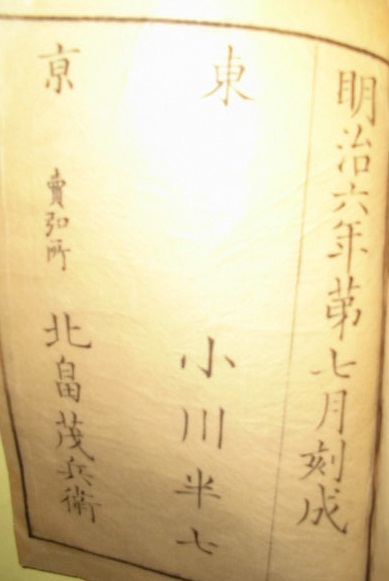 明治六年第七月刻成
東 小川半七
京 賣弘所 北畠茂兵衛